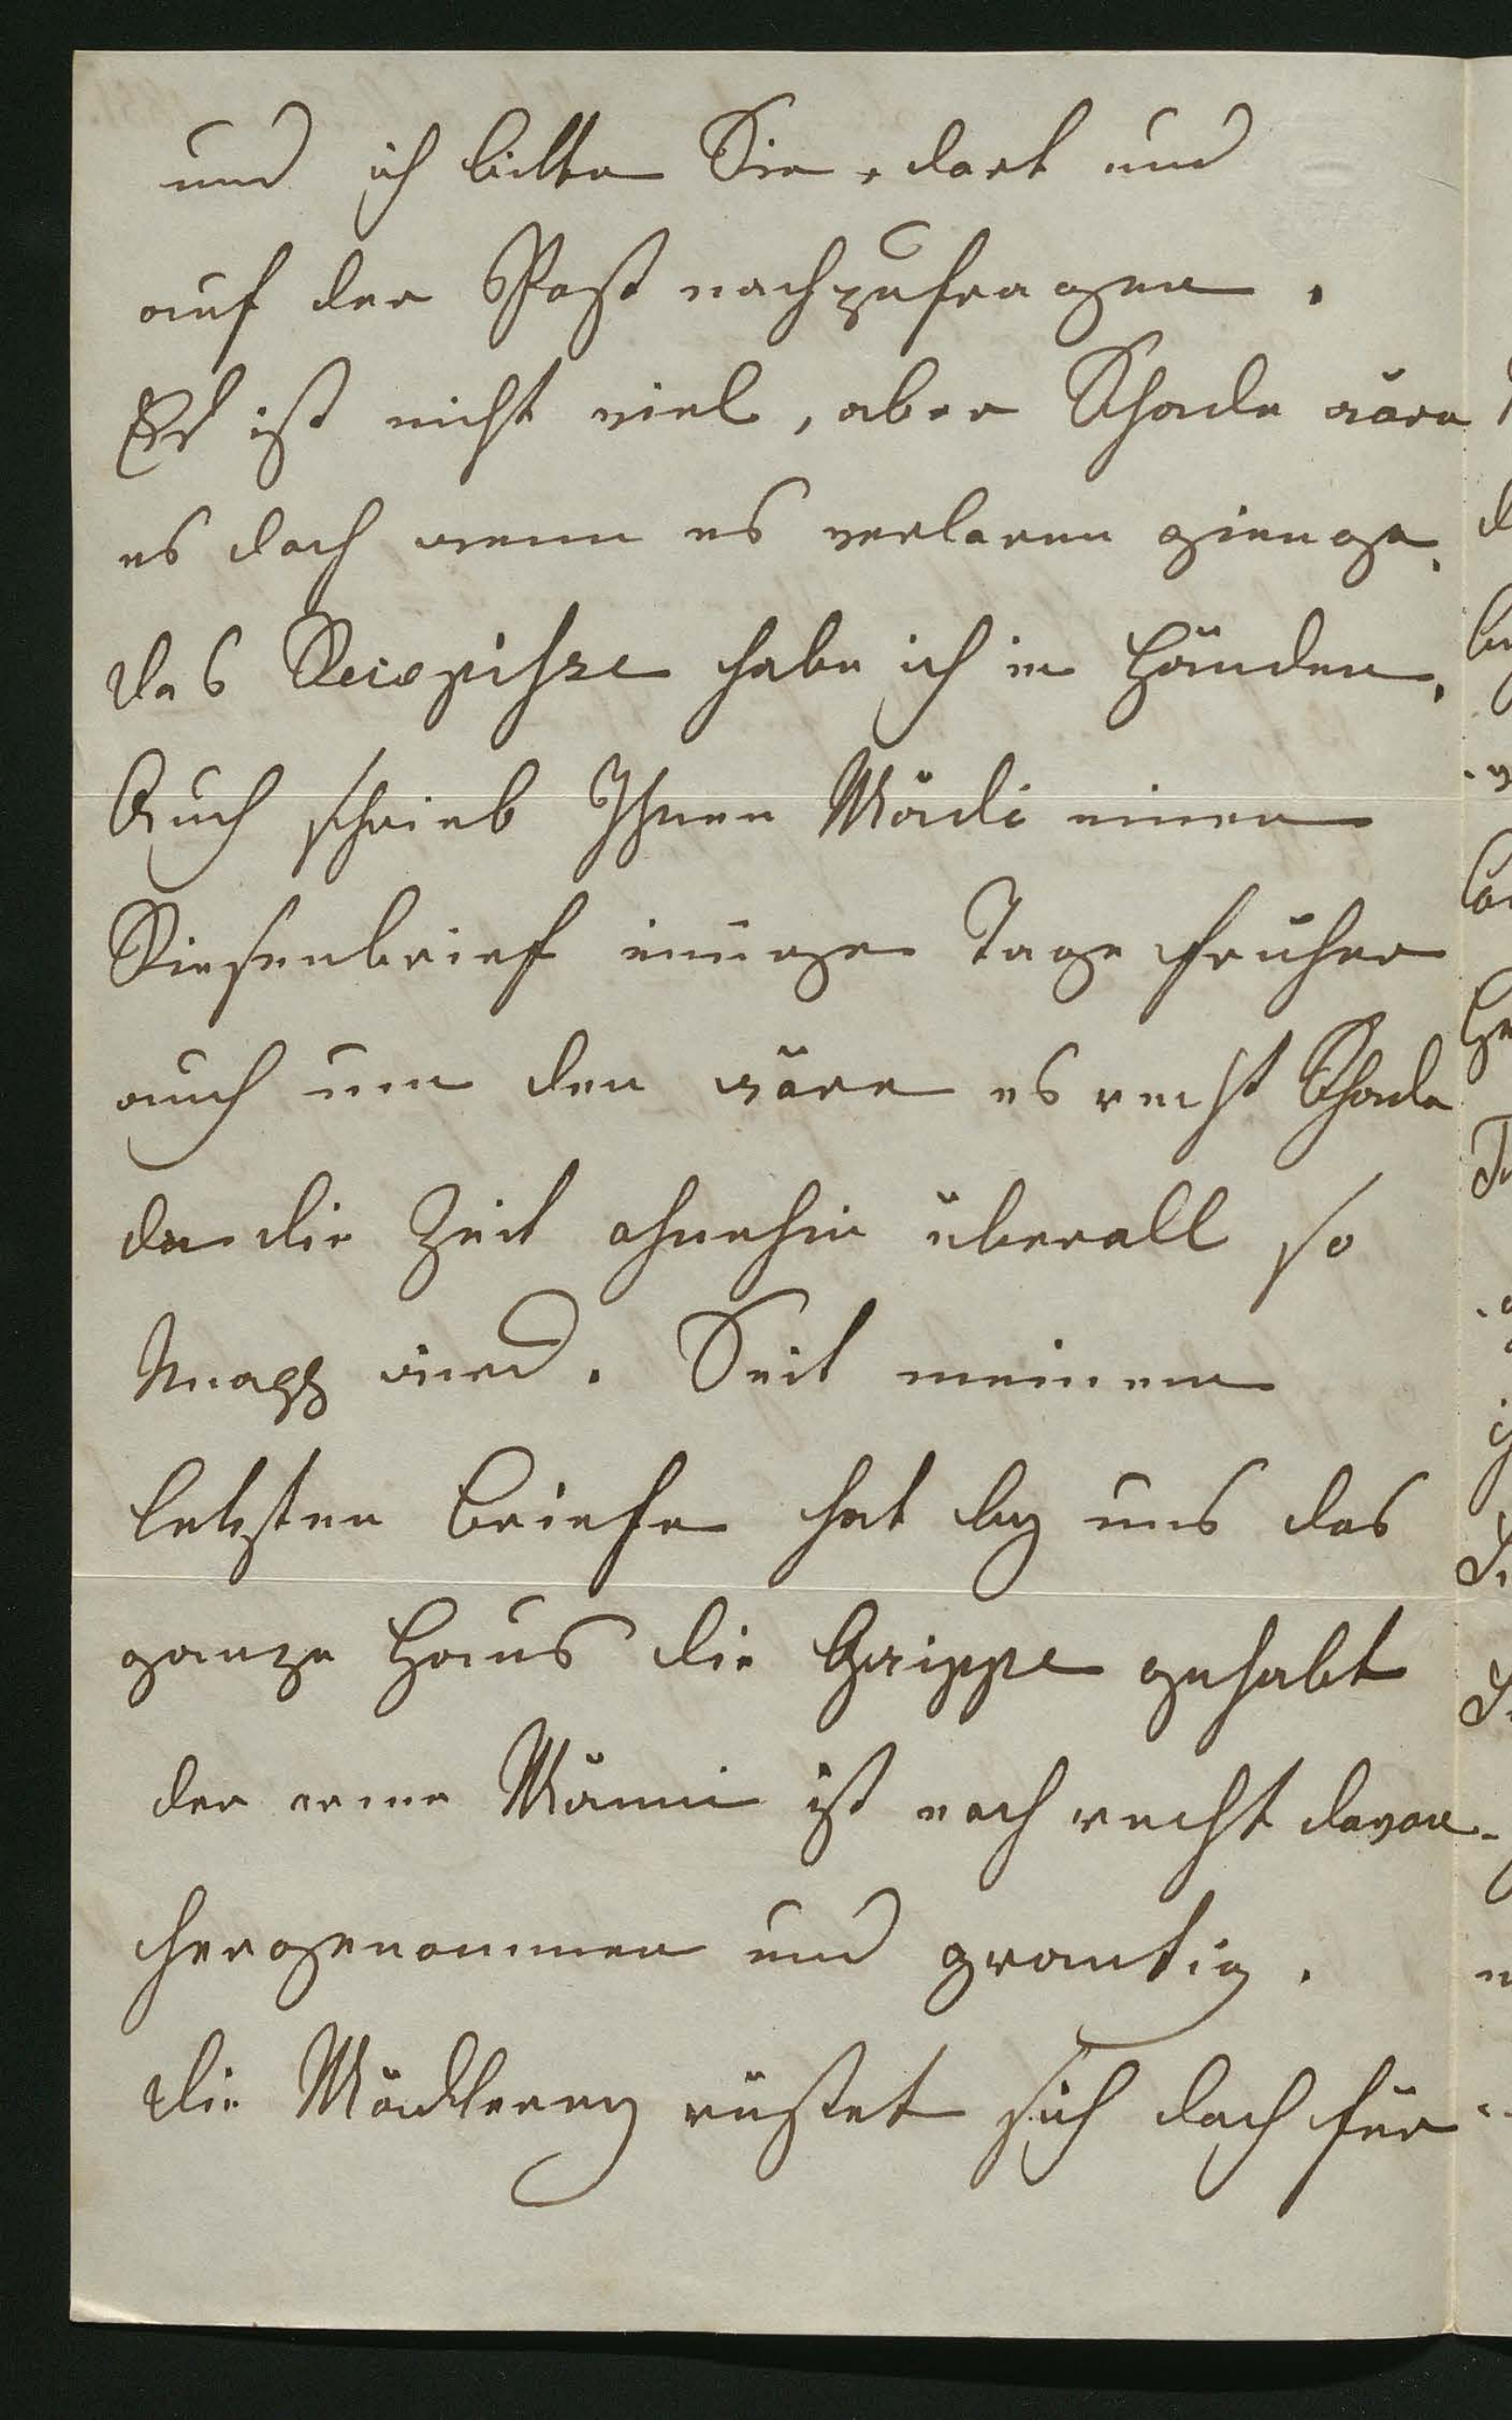 und ich bitte Sie, dort und
auf der Post nachzufragen.
Es ist nicht viel, aber Schade wäre
es doch wenn es verloren gienge.
das Recepisse habe ich in Händen.
Auch schrieb Ihnen Mädi einen
Riesenbrief einige Tage früher
auch um den wäre es recht Schade
da die Zeit ohnehin überall so
knapp wird. Seit meinem
letzten Briefe hat bey uns das
ganze Haus die Grippe gehabt
der arme Männi ist noch recht davon
hergenommen und grantig.
die Mädlerey rüstet sich doch für